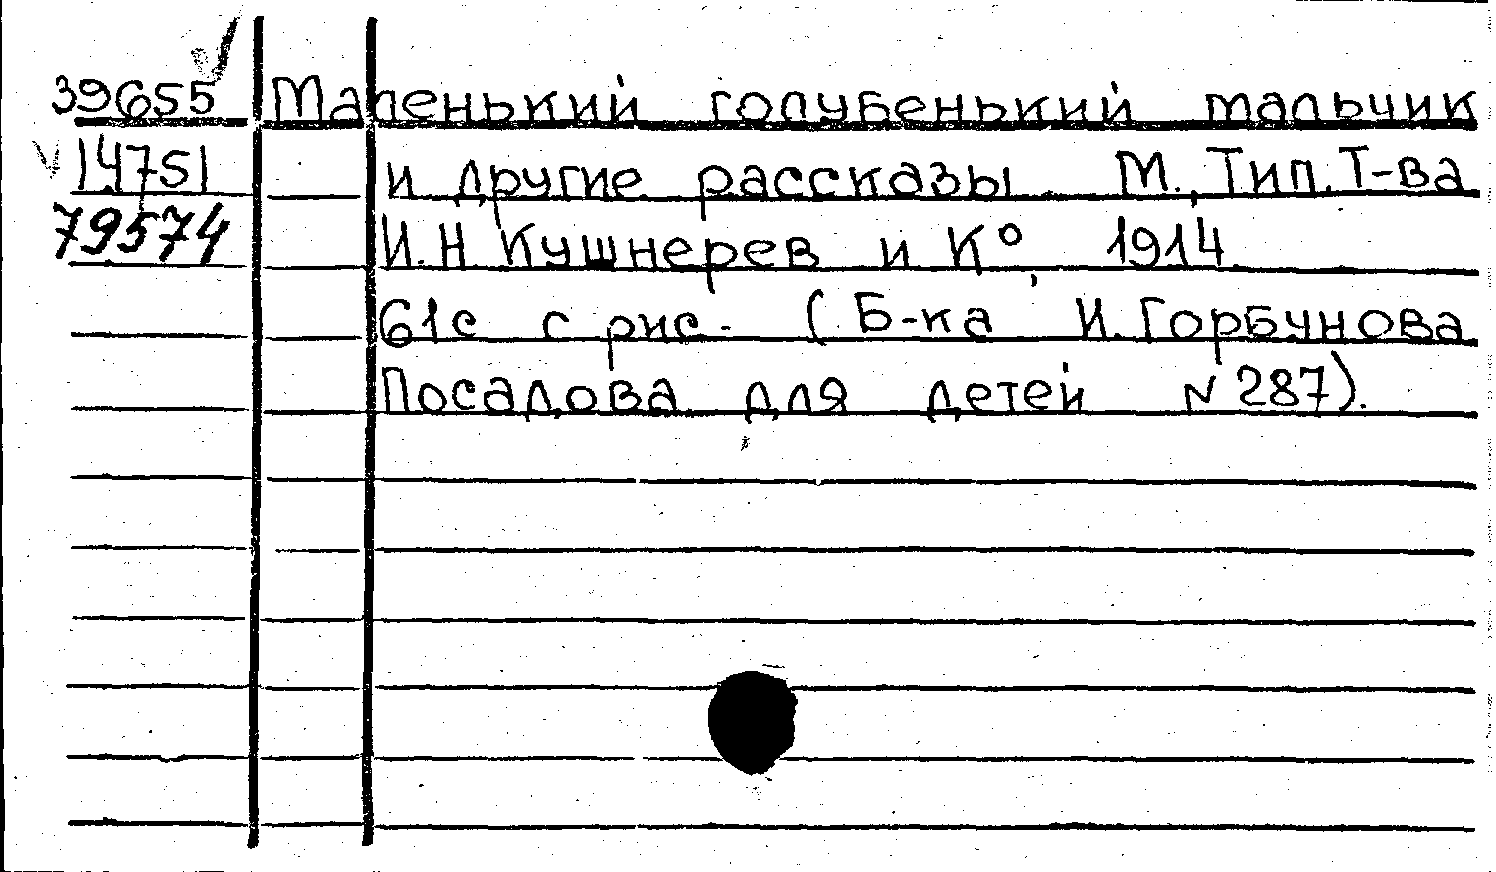 39655 Маленький голубенький мальчик
14751 и другие рассказы. М., Тип. Т-ва
79574 И.Н. Кушнерев и К°, 1914.
61с с рис. (Б-ка И. Горбунова
Посадова для детей N 287).